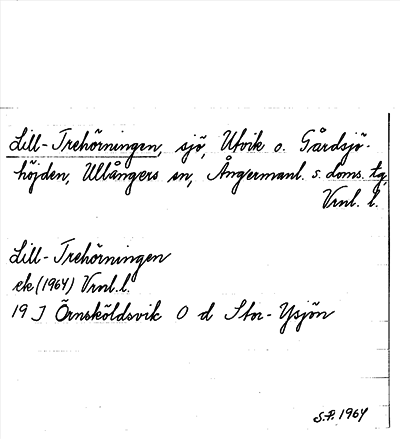 Lill-Trehörningen, sjö, Utvik o. Gårdsjö-
höjden, Ullångers sn, Ångermanl. s. doms. tg,
Vrnl. l.
Lill-Trehörningen
ek (1964) Vrnl. l.
19 J Örnsköldsvik O d Stor-Ysjön
S.P. 1964